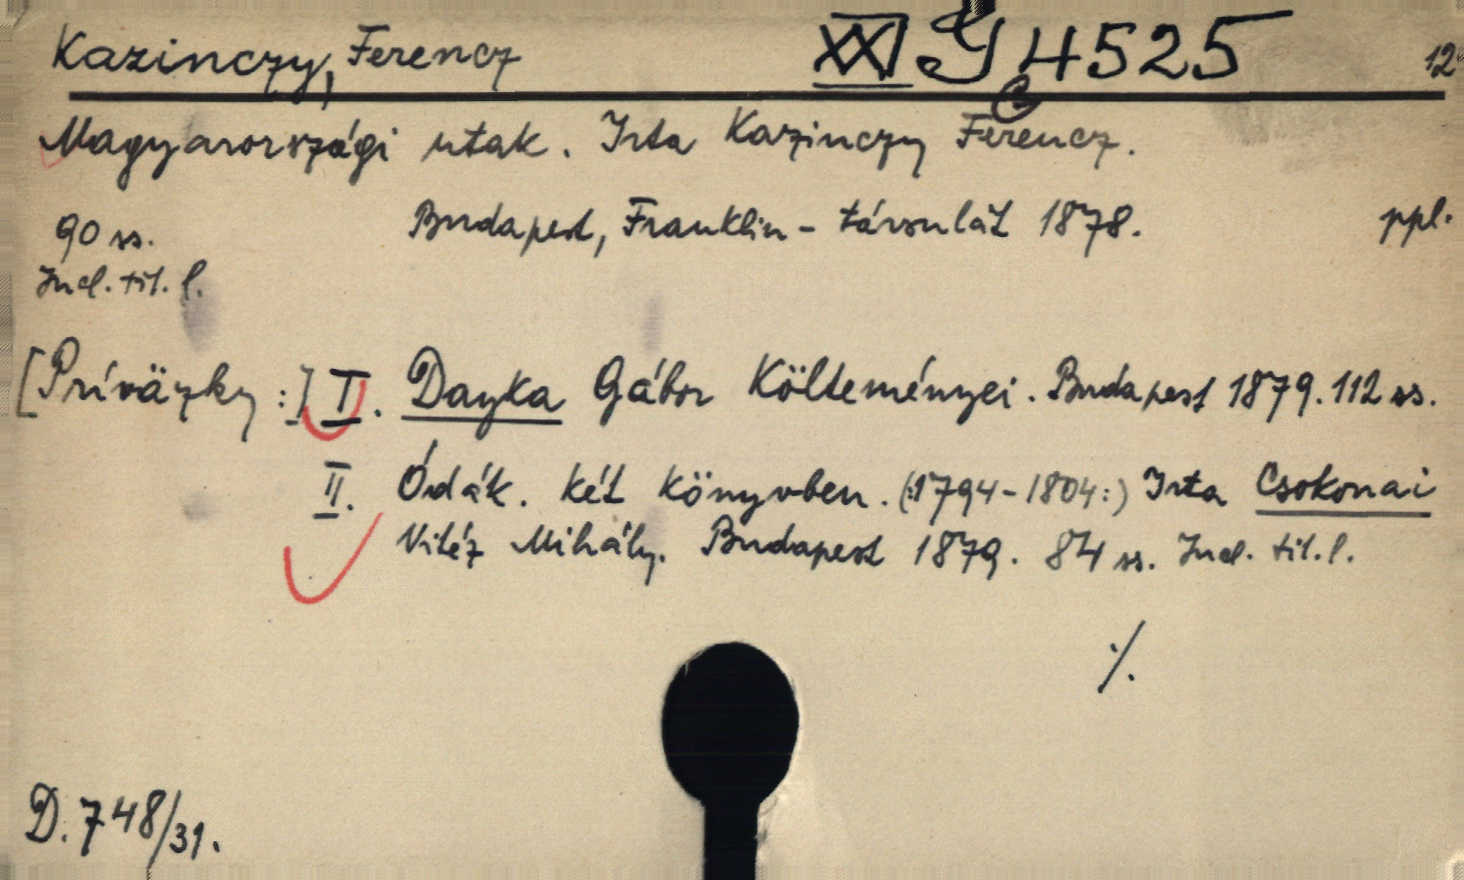 Kazinczy, Ferencz XXI G 4525 12°
Magyarországi utak. Irta Kazinczy Ferencz.
90 ss. Budapest, Franklin-társulát 1878. ppl.
Incl. tit. l.
[Príväzky:] I. Dayka Gábor Költeményei. Budapest 1879. 112 ss.
II. Ódák. két könyvben. (:1794-1804:) Irta Csokonai
Vitéz Mihály. Budapest 1879. 84 ss. Incl. tit. l.
./.
D. 748/31.